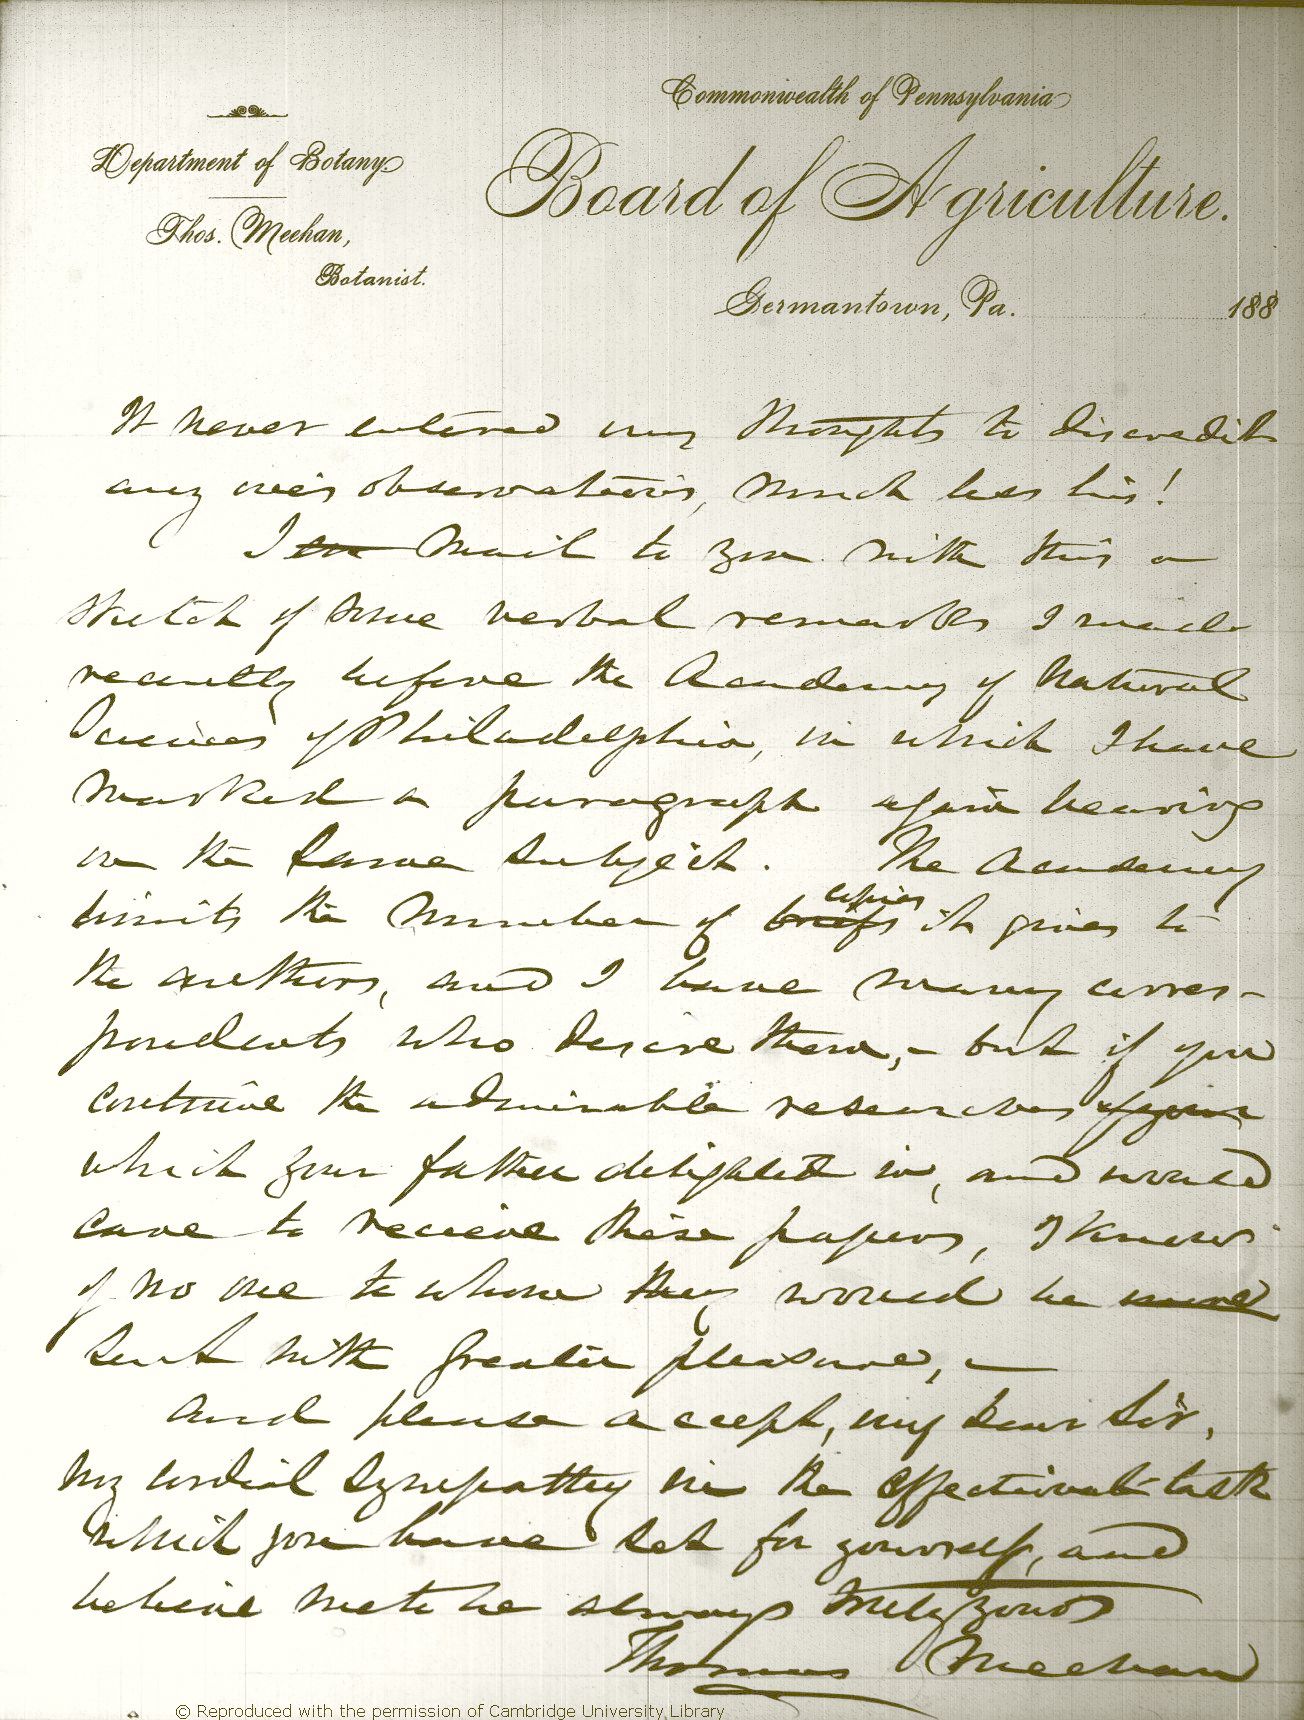 Commonwealth of Pennsylvania
Board of Agriculture.
Department of Botany.
Thos. Meehan,
Botanist.
Germantown, Pa. 188
It never entered my thoughts to discredit
any one's observations, much less his!
I mail to you with this a
sketch of some verbal remarks I made
recently before the Academy of Natural
Sciences of Philadelphia, in which I have
marked a paragraph again bearing
on the same subject. The Academy
limits the number of briefs copies it gives to
the authors, and I have many corres-
pondents who desire them, – but if you
continue the admirable researches
which your father delighted in, and would
care to recieve these papers, I know
of no one to whom they would be
sent with greater pleasure, –
And please accept, my dear Sir,
my cordial sympathy in the affectionate task
which you have set for yourself, and
believe me to be always truly yours
Thomas Meehan
© Reproduced with the permission of Cambridge University Library